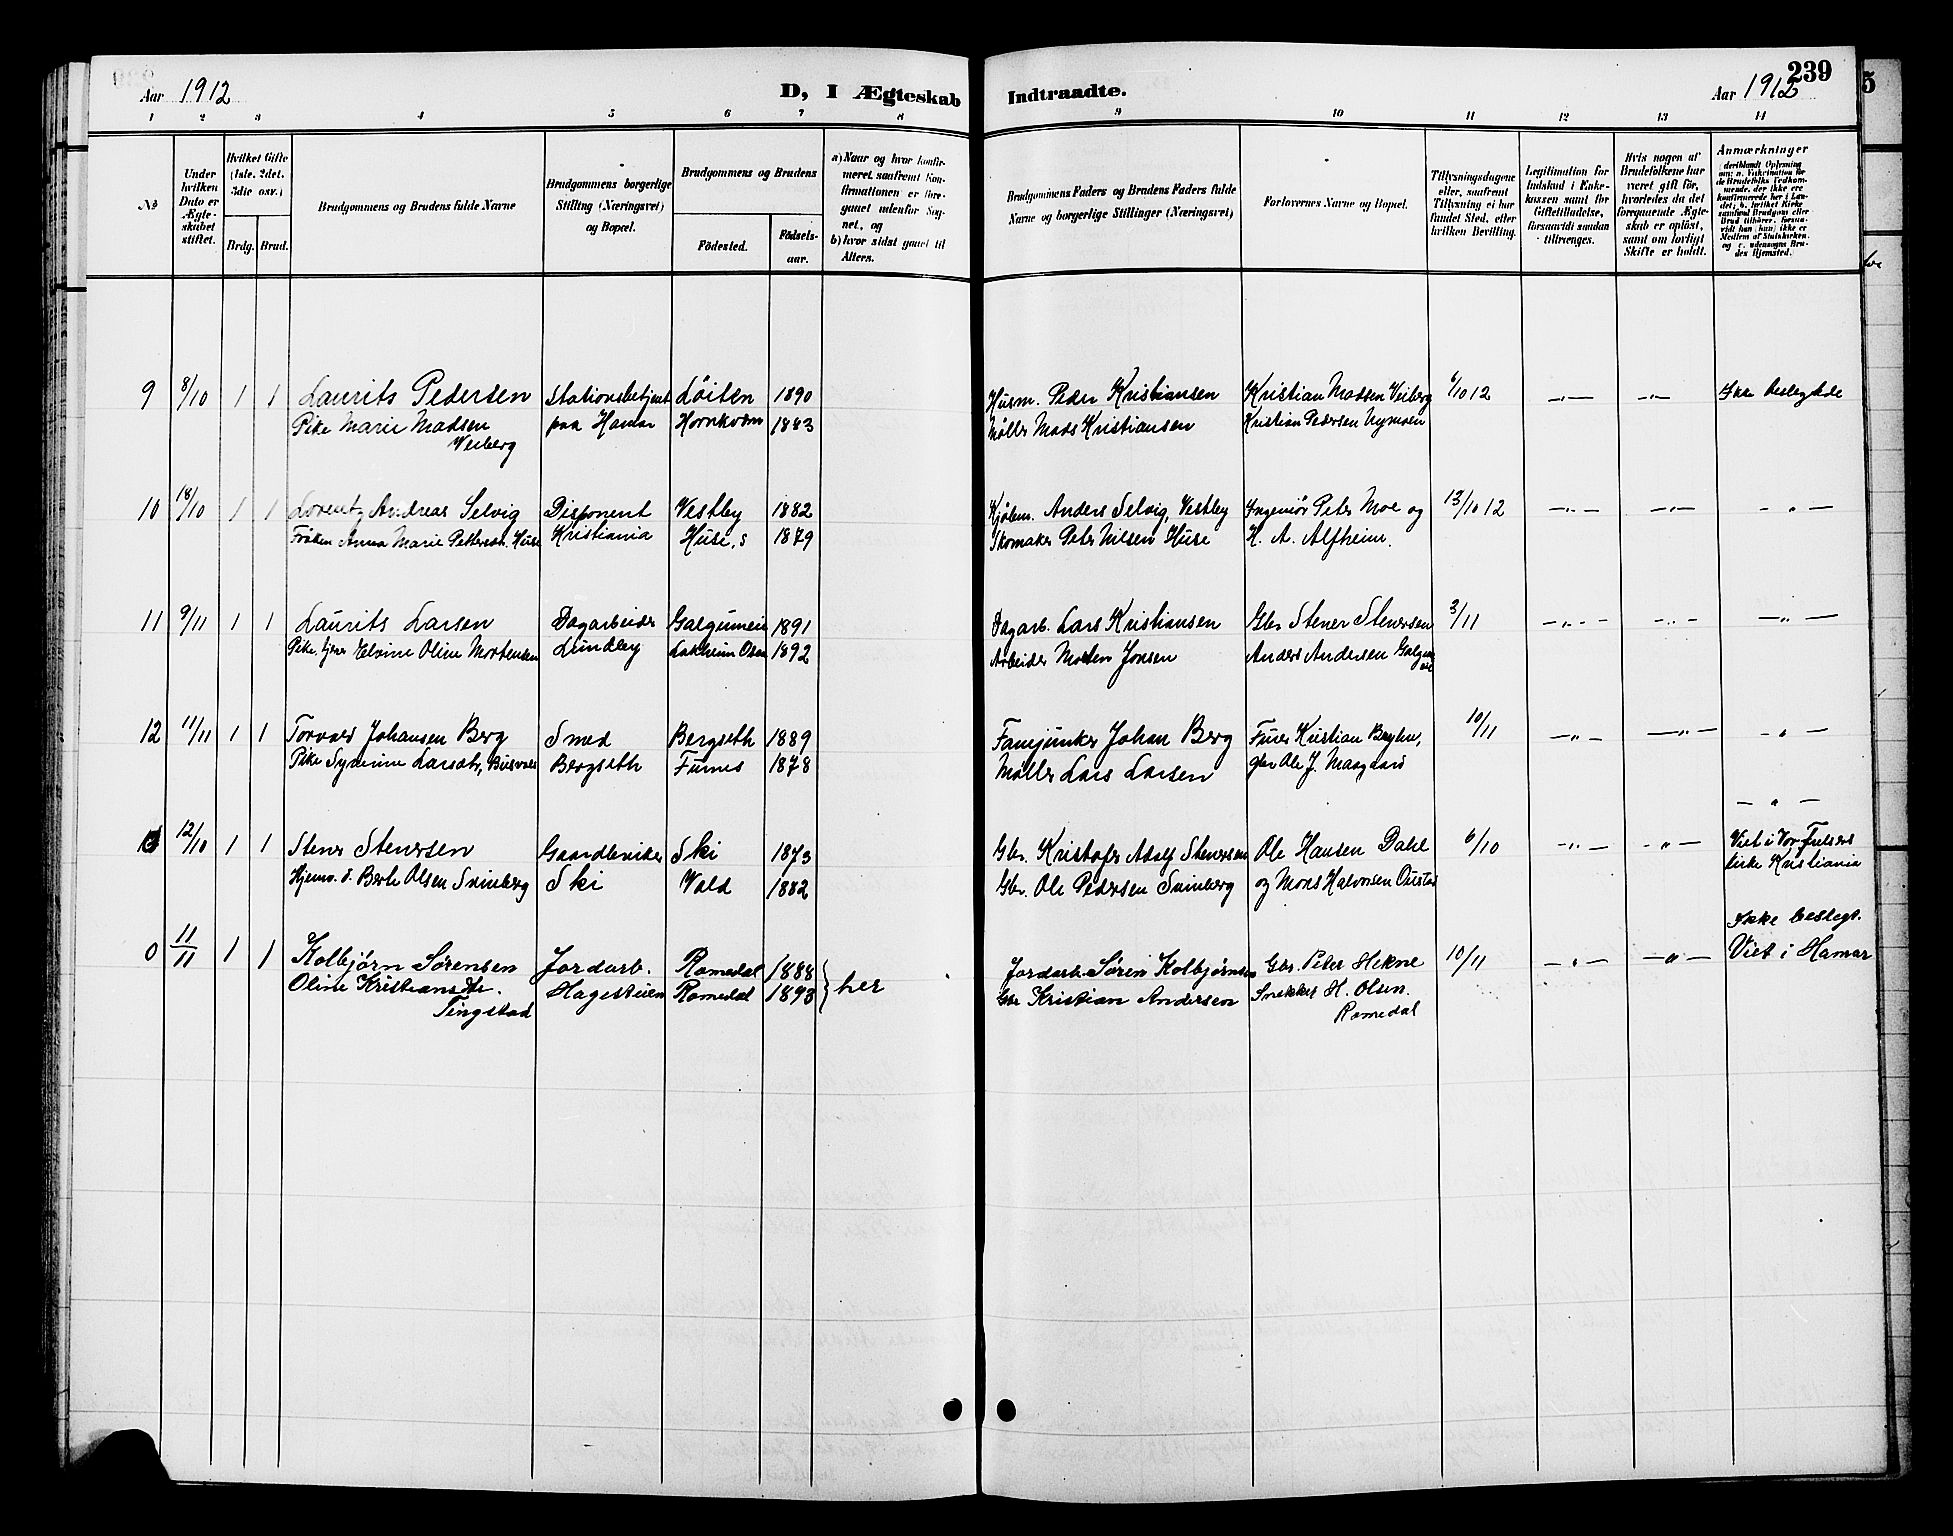 Aar 1912
D, I Ægteskab Indtraadte.
Aar 1912
239
1 2 3 4 5 6 7 8 9 10 11 12 13 14
No
Under hvilken Dato er Ægteskabet stiftet.
Hvilket Gifte (1ste, 2det, 3die osv.)
Brdg. Brud.
Brudgommens og Brudens fulde Navne
Brudgommens borgerlige Stilling (Næringsvei) og Bopæl.
Brudgommens og Brudens
Födested.
Födselsaar.
a) Naar og hvor konfirmeret, saafremt Konfirmationen er foregaaet udenfor Sognet, og
b) hvor sidst gaaet til Alters.
Brudgommens Faders og Brudens Faders fulde Navne og borgerlige Stillinger (Næringsvei)
Forlovernes Navne og Bopæl.
Tillysningsdagene eller, saafremt Tillysning ei har fundet Sted, efter hvilken Bevilling.
Legitimation for Indskud i Enkekassen samt for Giftetilladelse, forsaavidt saadan tiltrænges.
Hvis nogen af Brudefolkene har været gift før, hvorledes da det foregaaende Ægteskab er opløst, samt om lovligt Skifte er holdt.
Anmærkninger
9 8/10 1 1 Laurits Pedersen Stationsbetjent Löiten 1890 Husm. Peder Kristiansen Kristian Madsen Veiberg 6/10 12 -"- -"- Ikke beslegtede
Pike Marie Madsen paa Hamar Hornkværn 1883 Møller Mads Kristiansen Kristian Pedersen Nymoen
Veiberg
10 18/10 1 1 Lorentz Andreas Selvig Disponent Vestby 1882 Kjøbm. Anders Selvig, Vestby Ingeniør Peter Moe og 13/10 12 -"- -"- -"-
Frøken Anna Marie Pettersdt. Huse Kristiania Huse, s 1879 Skomaker Peter Nilsen Huse H. A. Alfheim.
11 9/11 1 1 Laurits Larsen Dagarbeider 1891 Dagarb. Lars Kristiansen Gbr Stener Stenersen 3/11 -"- -"- -"-
Pike Elvine Oline Mortensen Lundby 1892 Arbeider Morten Jonsen Anders Andersen
12 11/11 1 1 Torvald Johansen Berg Smed Bergseth 1889 Fanejunker Johan Berg Furer Kristian 10/11 -"- -"- -"-
Pike Larsdtr, Bergseth Furnes 1878 Møller Lars Larsen gbr Ole J. Maagaard
-"-
12/10 1 1 Stener Stenersen Gaardbruker Ski 1873 Gbr. Kristofer Adolf Stenersen Ole Hansen Dahl 6/10 -"- -"- Viet i Vor Frelsers
Hjemv. d. Berte Olsen Svinberg Ski Vold 1882 Gbr. Ole Pedersen Svinberg og Mons Halvorsen kirke Kristiania
Ikke beslegt.
0 11/11 1 1 Kolbjørn Sørensen Jordarb. Romedal 1888 her Jordarb. Søren Kolbjørnsen Gbr. Peter Hekne 10/11 -"- -"- Viet i Hamar
Oline Kristiansdtr. Hagestuen Romedal 1893 Gbr Kristian Andersen Snekker H. Olsen.
Tingstad Romedal